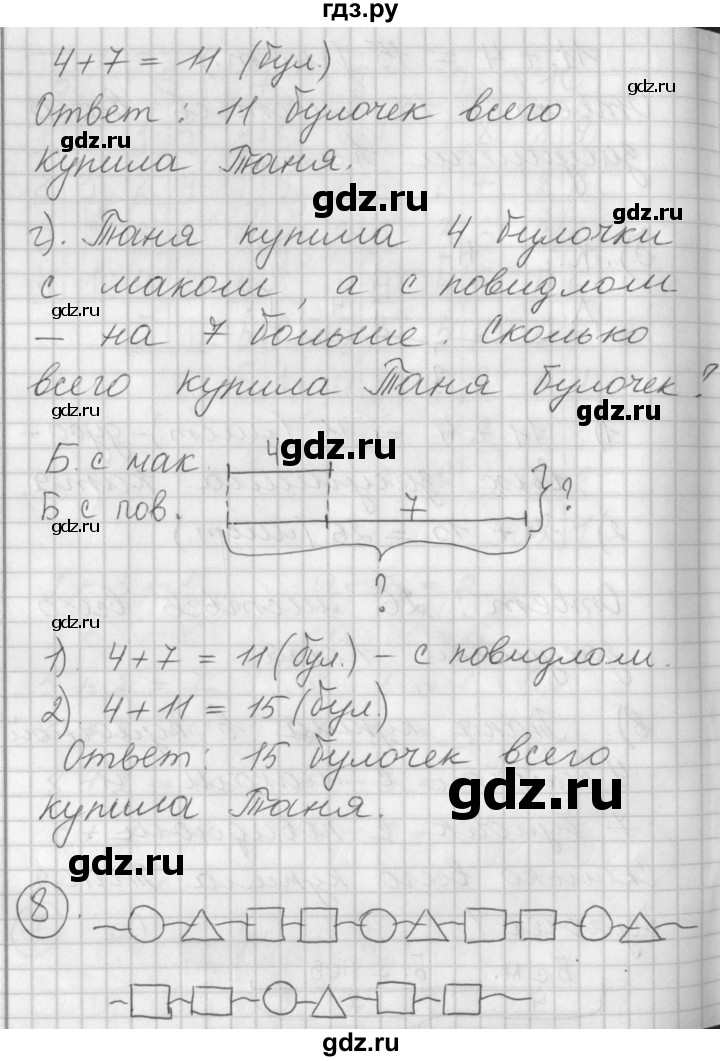 гдз.ру
4 + 7 = 11 (бул.)
gdz.ru
Ответ : 11 булочек всего
gdz.ru
купила Таня.
gdz.ru
gdz.ru
г). Таня купила 4 булочки
с маком, а с повидлом
gdz.ru
— на 7 больше. Сколько
всего купила Таня булочек?
gdz.ru
gdz.ru
Б. с мак. 4
Б с пов. 7 ?
gdz.ru
?
gdz.ru
1). 4 + 7 = 11 (бул.) – с повидлом.
2). 4 + 11 = 15 (бул.)
Ответ: 15 булочек всего
gdz.ru
купила Таня.
gdz.ru
8.
гдз.ру